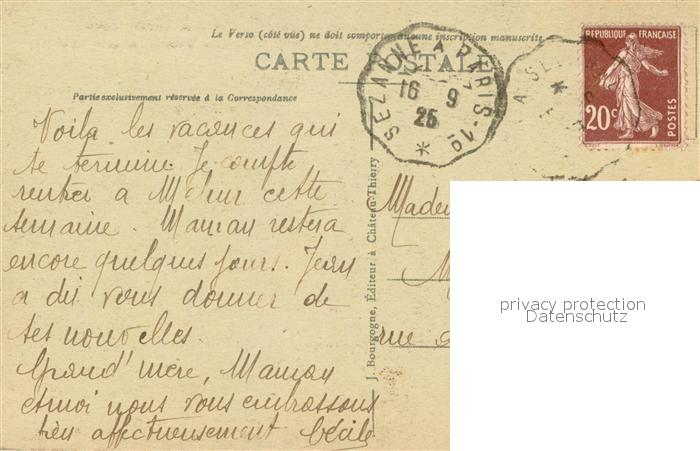 Le Verso (côté vue) ne doit comporter aucune inscription manuscrite
CARTE POSTALE
Partie exclusivement réservée à la Correspondance
SEZANNE A PARIS - 1º
16 9
25
REPUBLIQUE FRANÇAISE
20c
POSTES
Voila les vacances qui
se termine. Je compte
rentrer a Melun cette
semaine. Maman restera
encore quelques jours. Jean
a dû vous donner de
ses nouvelles.
Grand'mère, Maman
et moi nous vous embrassons
bien affectueusement Cécile
J. Bourgogne, Éditeur à Château-Thierry
Madem
M
rue
privacy protection
Datenschutz